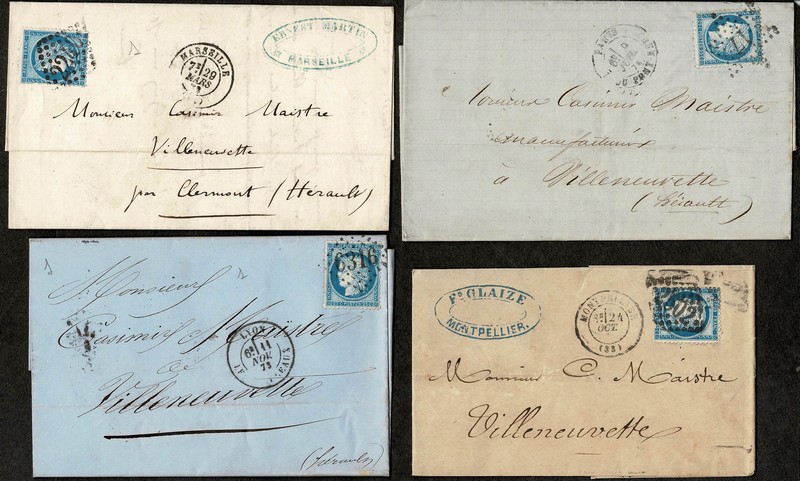 ERNEST MARTIN
MARSEILLE
MARSEILLE
29
MARS
Monsieur Casimir Maistre
Villeneuvette
par Clermont (Hérault)
PARIS
9
Casimir Maistre
manufacturier
à Villeneuvette
(Hérault)
6316
Monsieur
Casimir Maistre
de
Villeneuvette
(Hérault)
LYON
11
NOV
73
Fs GLAIZE
MONTPELLIER.
MONTPELLIER
24
OCT.
(33)
Monsieur C. Maistre
Villeneuvette